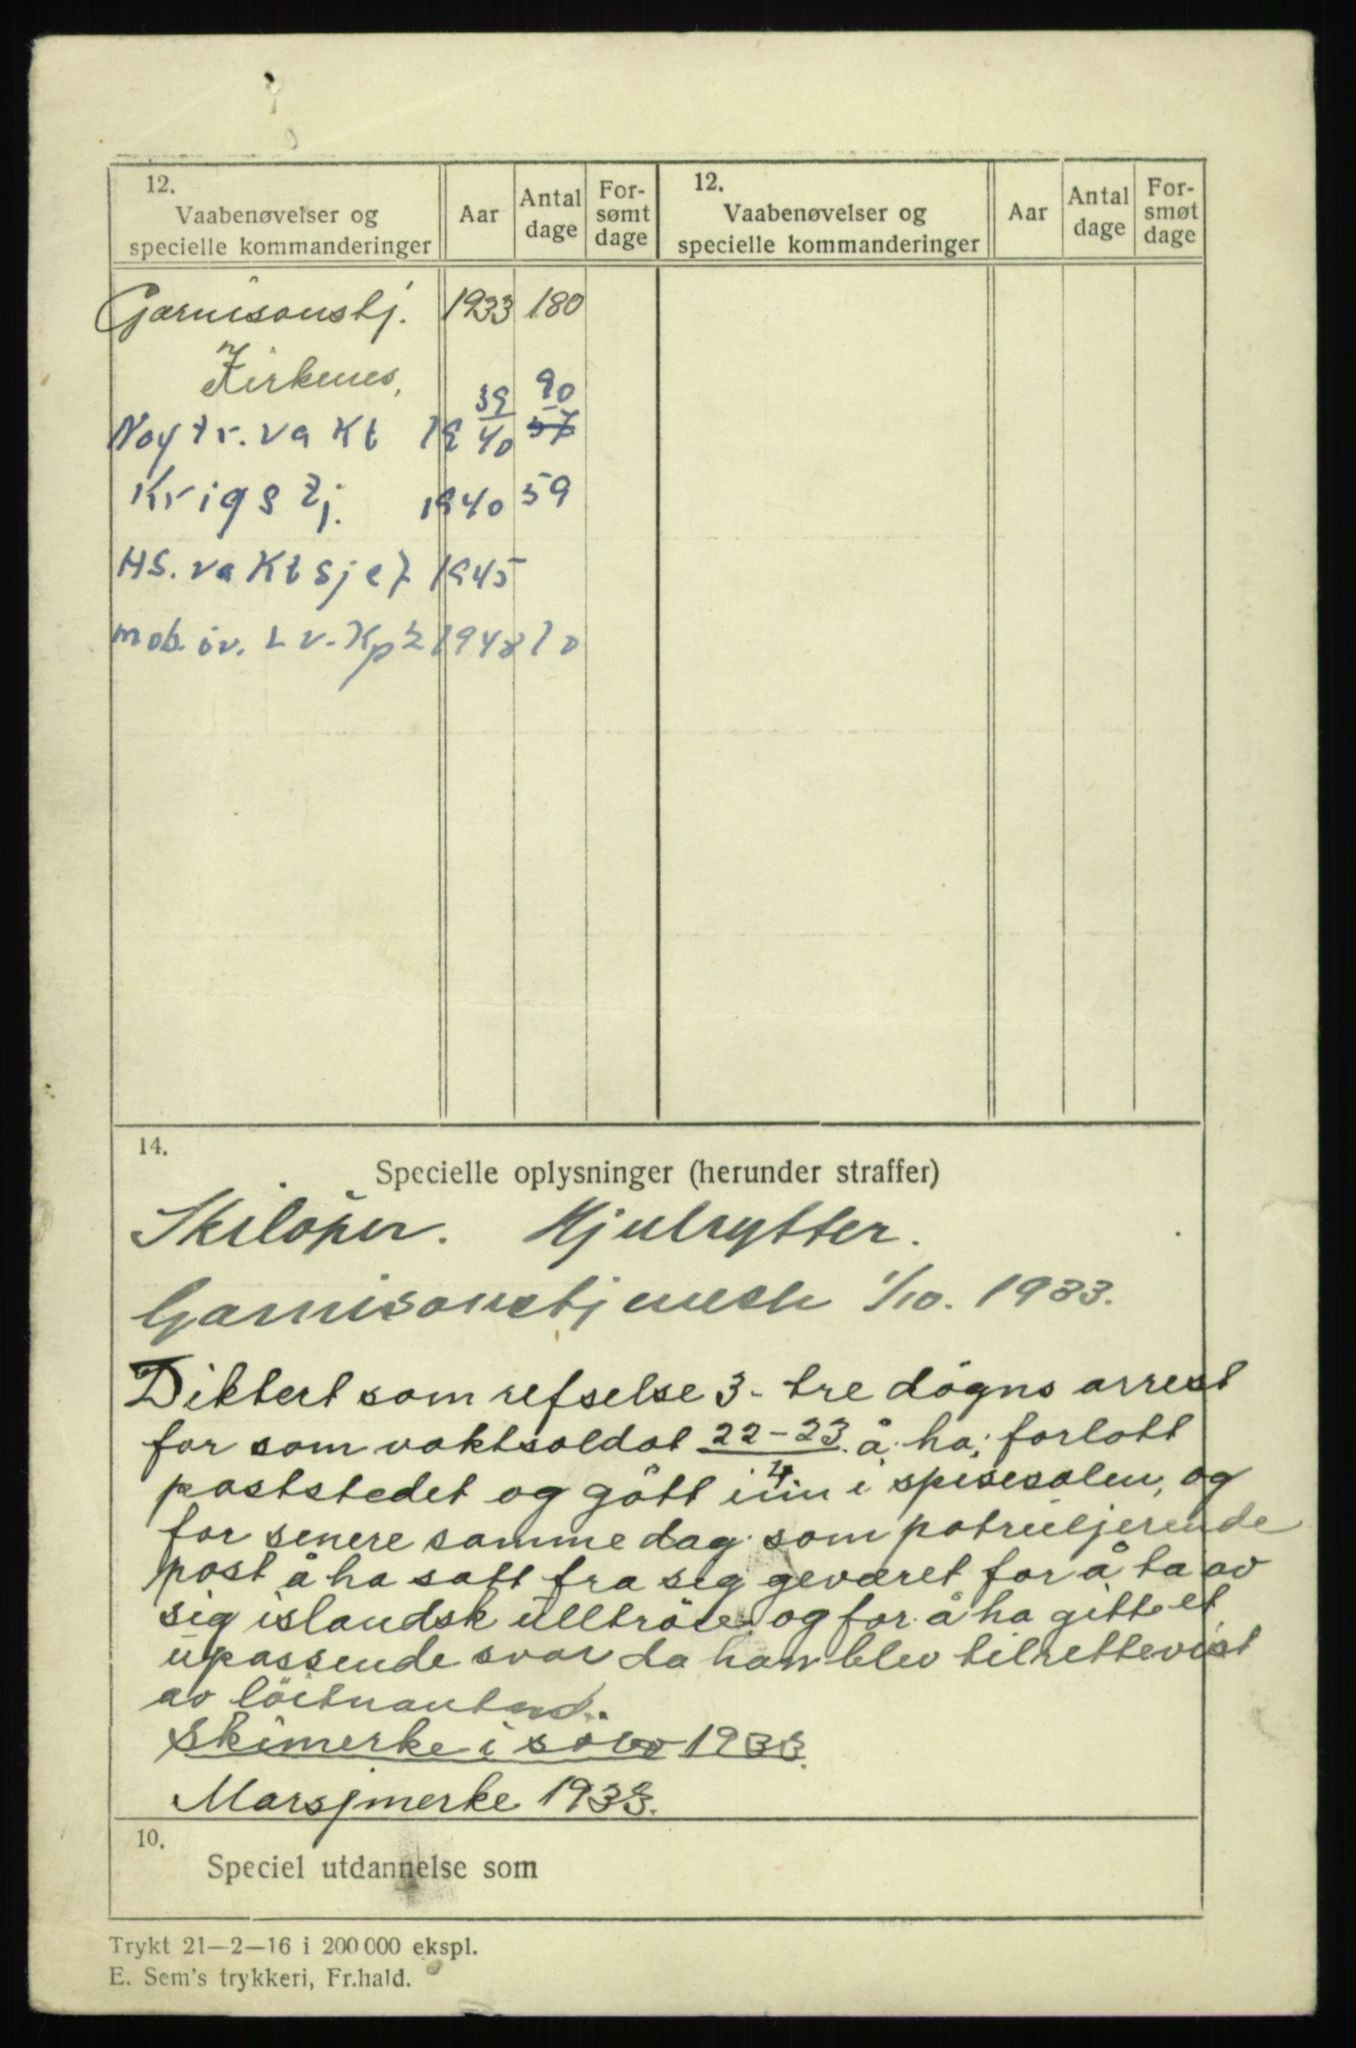 12.
Vaabenøvelser og
specielle kommanderinger
Aar
Antal
dage
For-
sømt
dage
12.
Vaabenøvelser og
specielle kommanderinger
Aar
Antal
dage
For-
smøt
dage
Garnisonstj. 1933 180
Kirkenes,
Nøytr.vakt 19 39/40 90 57
Krigstj. 1940 59
HS. vaktsjef 1945
mob. öv. Lv. Kp 2 1948 10
14.
Specielle oplysninger (herunder straffer)
Skilöper. Hjulrytter.
Garnisonstjeneste 1/10. 1933.
Diktert som refselse 3- tre døgns arrest
for som vaktsoldat 22-23/4 å ha forlatt
poststedet og gått inn i spisesalen, og
for senere samme dag som patruljerende
post å ha satt fra sig geværet for å ta av
sig islandsk ulltröie og for å ha gitt et
upassende svar da han blev tilrettevist
av löitnanten.
Skimerke i sölv 1933.
Marsjmerke 1933.
10.
Speciel utdannelse som
Trykt 21—2—16 i 200 000 ekspl.
E. Sem's trykkeri, Fr.hald.